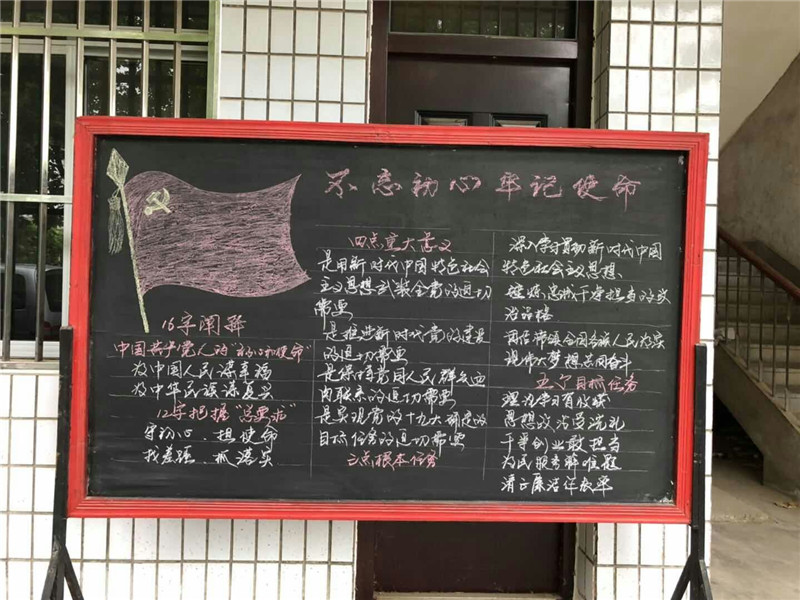 不忘初心牢记使命
16字阐释
中国共产党人的"初心和使命"
为中国人民谋幸福
为中华民族谋复兴
12字把握"总要求"
守初心、担使命
找差距、抓落实
四点重大意义
是用新时代中国特色社会
主义思想武装全党的迫切
需要
是推进新时代党的建设
的迫切需要
是保持党同人民群众血
肉联系的迫切需要
是实现党的十九大确定的
目标任务的迫切需要
三点根本任务
深入学习贯彻新时代中国
特色社会主义思想、
锤炼忠诚干净担当的政
治品格
团结带领全国各族人民为实
现伟大梦想共同奋斗
五个目标任务
理论学习有收获
思想政治受洗礼
干事创业敢担当
为民服务解难题
清正廉洁作表率